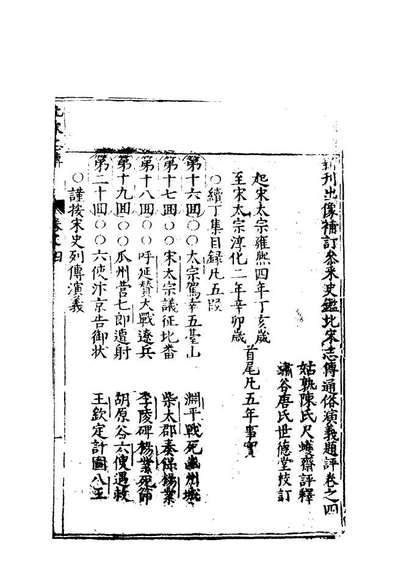 新刊出像補訂參采史鑑北宋志傳通俗演義題評卷之四
姑孰陳氏尺蠖齋評釋
繡谷唐氏世德堂校訂
起宋太宗雍熙四年丁亥歲
至宋太宗淳化二年辛卯歲
首尾凡五年事實
○續丁集目録凡五段
第十六回○○太宗駕幸五臺山 淵平戰死幽州城
第十七回○○宋太宗議征北番 柴太郡奏保楊業
第十八回○○呼延贊大戰遼兵 李陵碑楊業死節
第十九回○○瓜州營七郎遭射 胡原谷六使遇救
第二十回○○六使汴京告御狀 王欽定計圖八王
○謹按宋史列傳演義
北宋志傳
卷之四
一